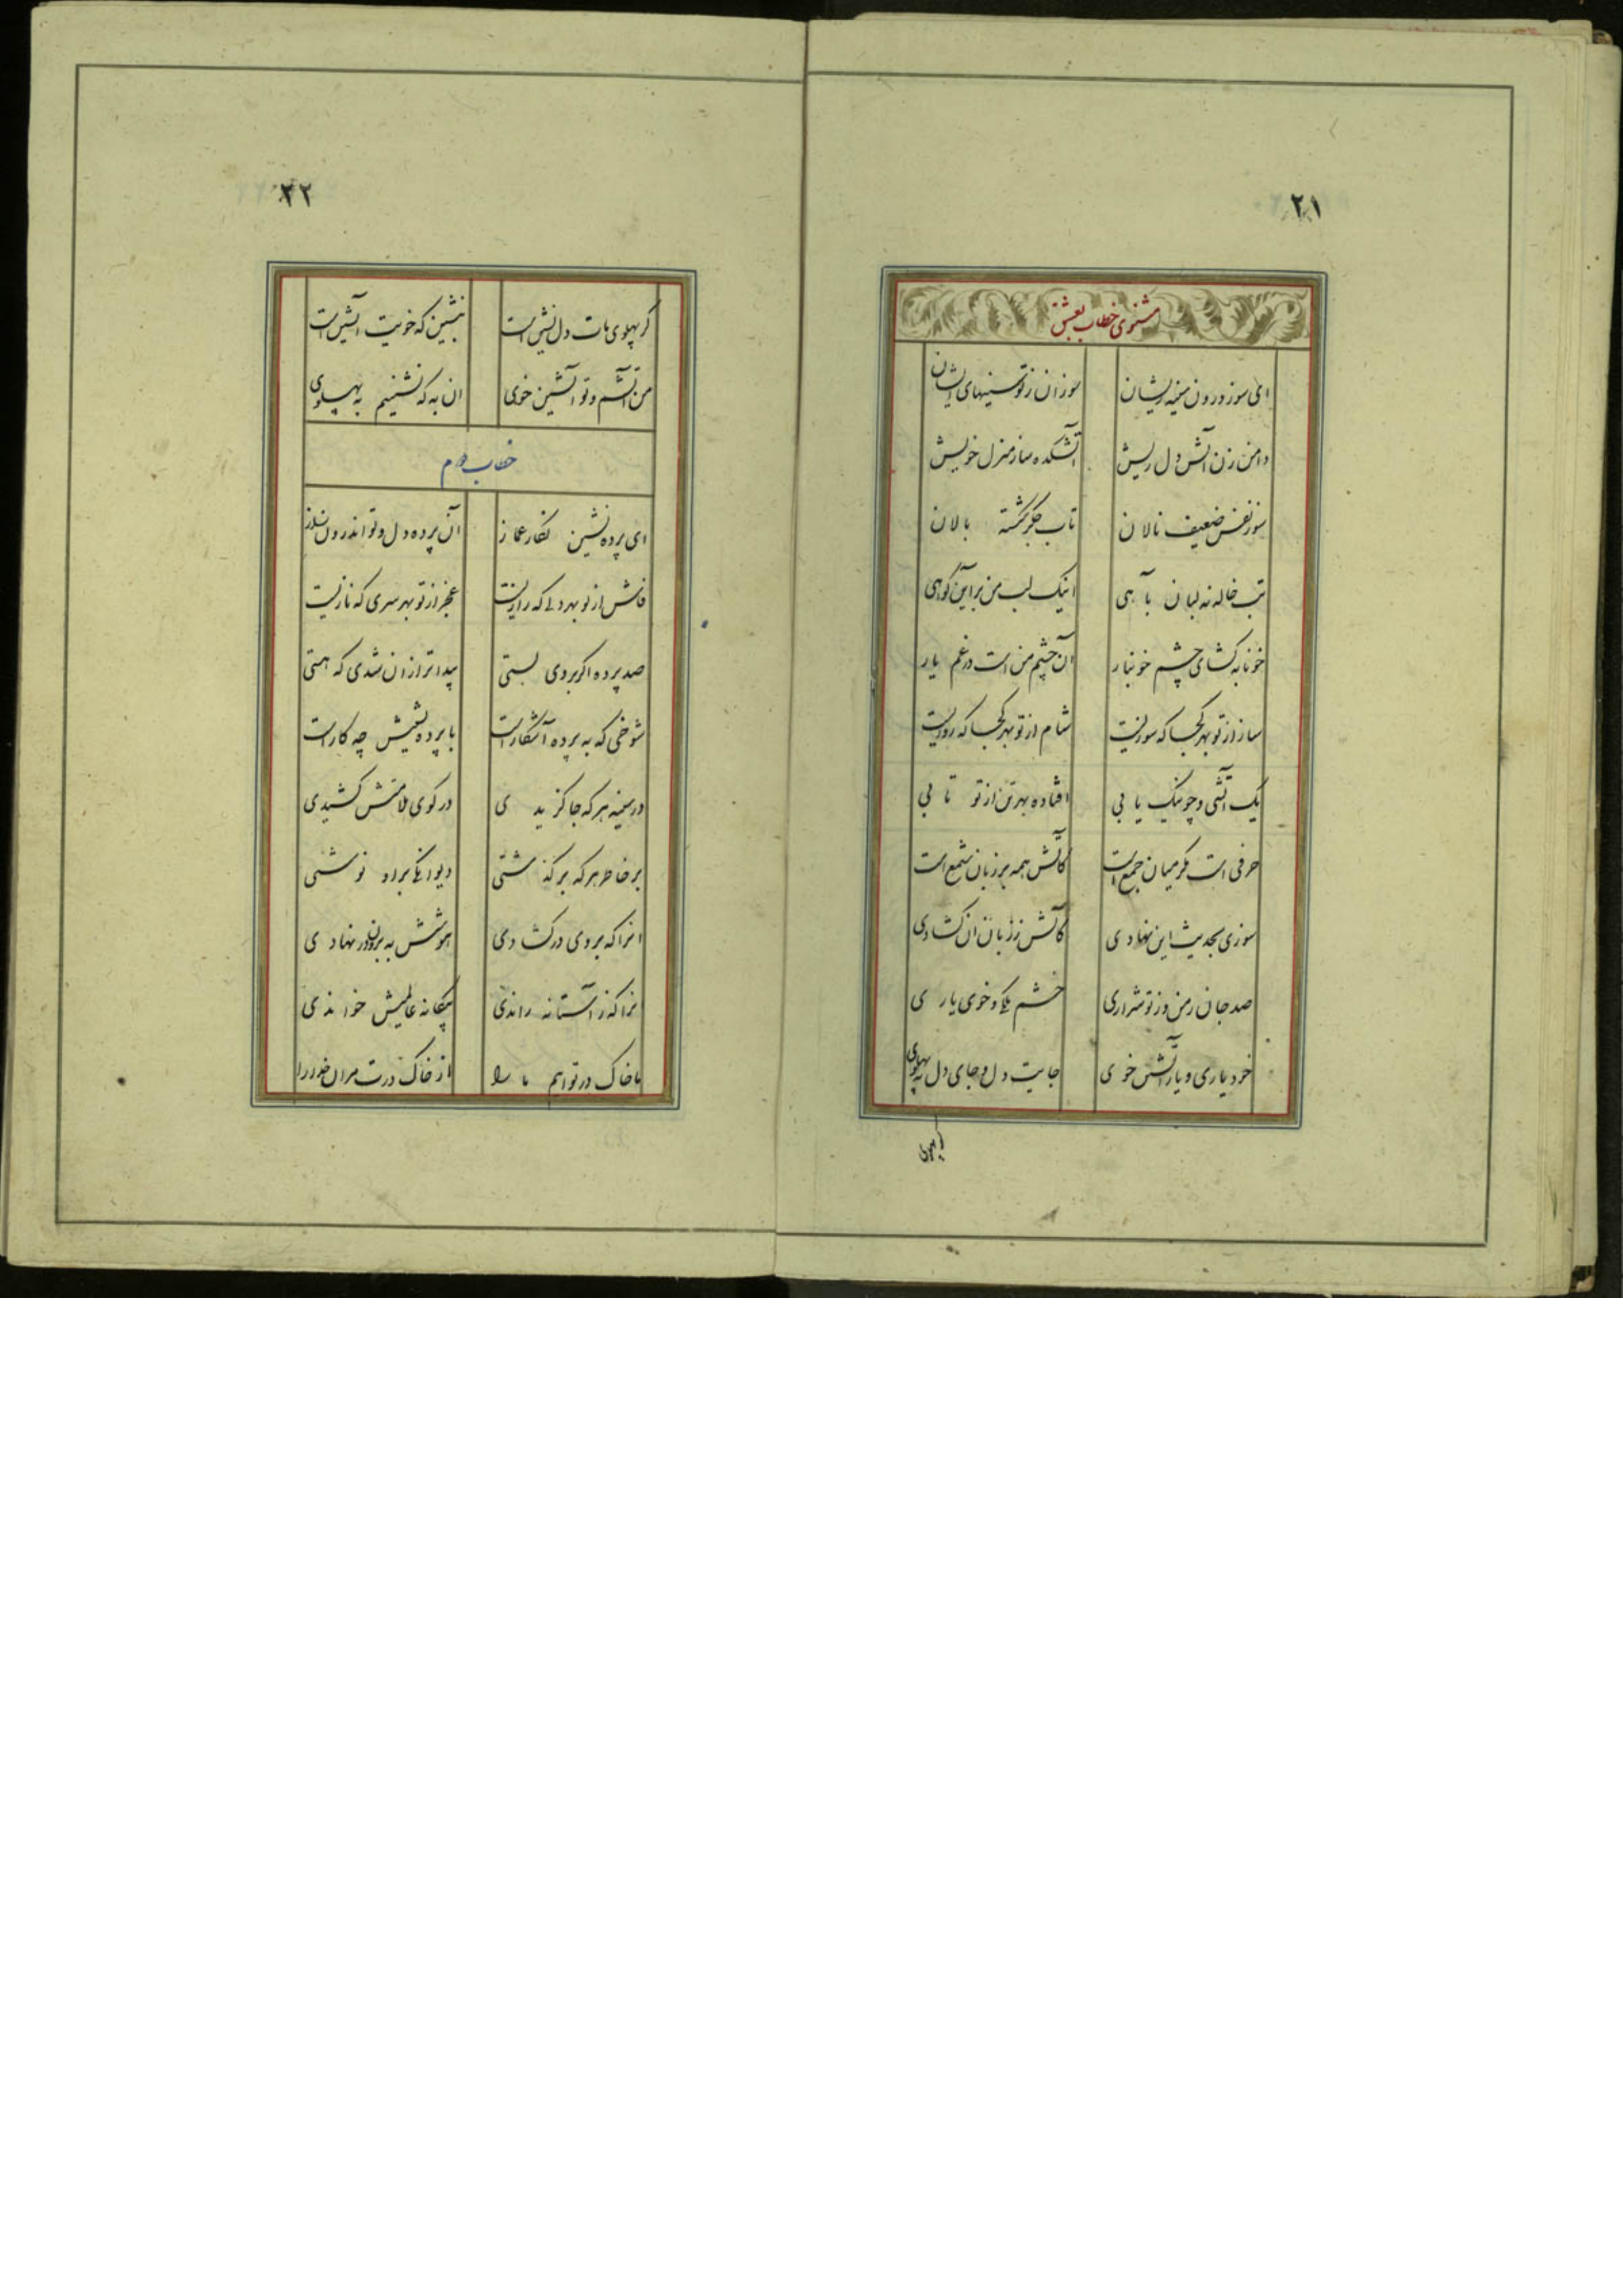 ۲۱
مثنوی خطاب بعشق
ای سوز درون سینه ریشان سوزان ز تو سینهای ایشان
دامن زن آتش دل ریش آتشکده ساز منزل خویش
سوز نفس ضعیف نالان تاب جگر بالان
تب خاله نه لبان با آهی اینک لب من بر این گواهی
خونابه گشای چشم خونبار آن چشم من است در غم یار
ساز از تو بهر کجا که سوزیست شام از تو بهر کجا که روزیست
یک آتشی و چو نیک یابی افتاده بهر تن از تو تابی
حرفی است مگر میان جمع است کآتش همه بر زبان شمع است
سوزی بحدیث این نهادی کآتش ز زبان آن گشادی
صد جان ز من و ز تو شراری خشم یکی و خوی یاری
خود یاری و یار آتشین خوی جایت دل و جای دل به پهلوی
۲۲
گر پهلوی مات دل نشین است بنشین که خویت آتشین است
من آتشم و تو آتشین خوی ان به که نشینیم به پهلوی
خطاب دوم
ای پرده نشین نگار غماز آن پرده دل و تو اندرون ساز
فاش از تو بهر دلی که رازیست عجز از تو بهر سری که نازیست
صد پرده اگر بروی بستی پیداتر از ان شدی که هستی
شوخی که به پرده آشکار است با پرده نشینیش چه کار است
در سینه هر که جا گزیدی در کوی ملامتش کشیدی
بر خاطر هر که بر گذشتی دیوانگی براو نوشتی
انرا که بروی در گشادی هوشش به برون در نهادی
انرا که ز آستانه راندی بیگانه عالمیش خواندی
ما خاک در تو ایم ما را از خاک درت مران خدا را